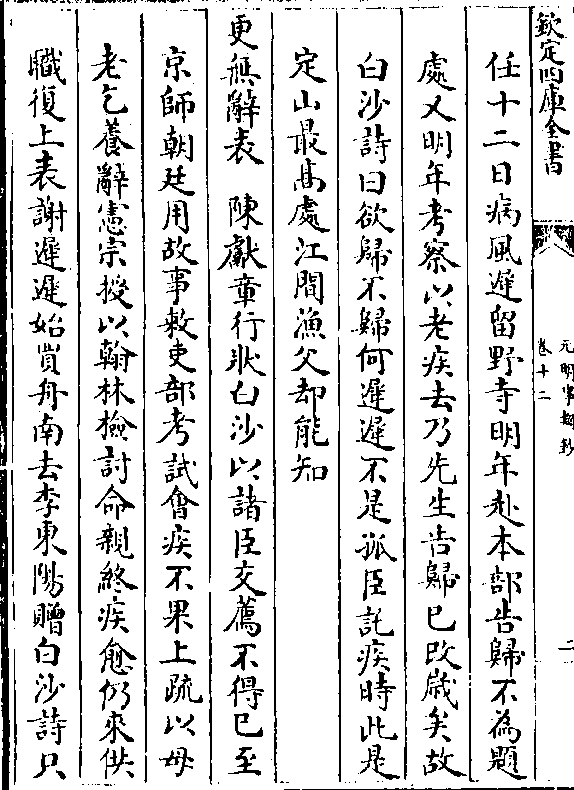 欽定四庫全書
元明事類鈔
卷十二
二
任十二日病風遲留野寺明年赴本部告歸不為題
處又明年考察以老疾去乃先生告歸已改嵗矣故
白沙詩曰欲歸不歸何遲遲不是孤臣託疾時此是
定山最髙處江間漁父却能知
更無辭表　陳獻章行狀白沙以諸臣交薦不得已至
京師朝廷用故事敕吏部考試會疾不果上疏以母
老乞養辭憲宗授以翰林檢討命親終疾愈仍來供
職復上表謝遲遲始買舟南去李東陽贈白沙詩只